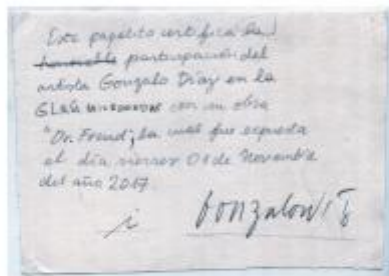 Este papelito certifica la
honorable participación del
artista Gonzalo Díaz en la
con su obra
"Dr. Freud", la cual fue expuesta
el día viernes 01 de Noviembre
del año 2017
i Gonzalowi